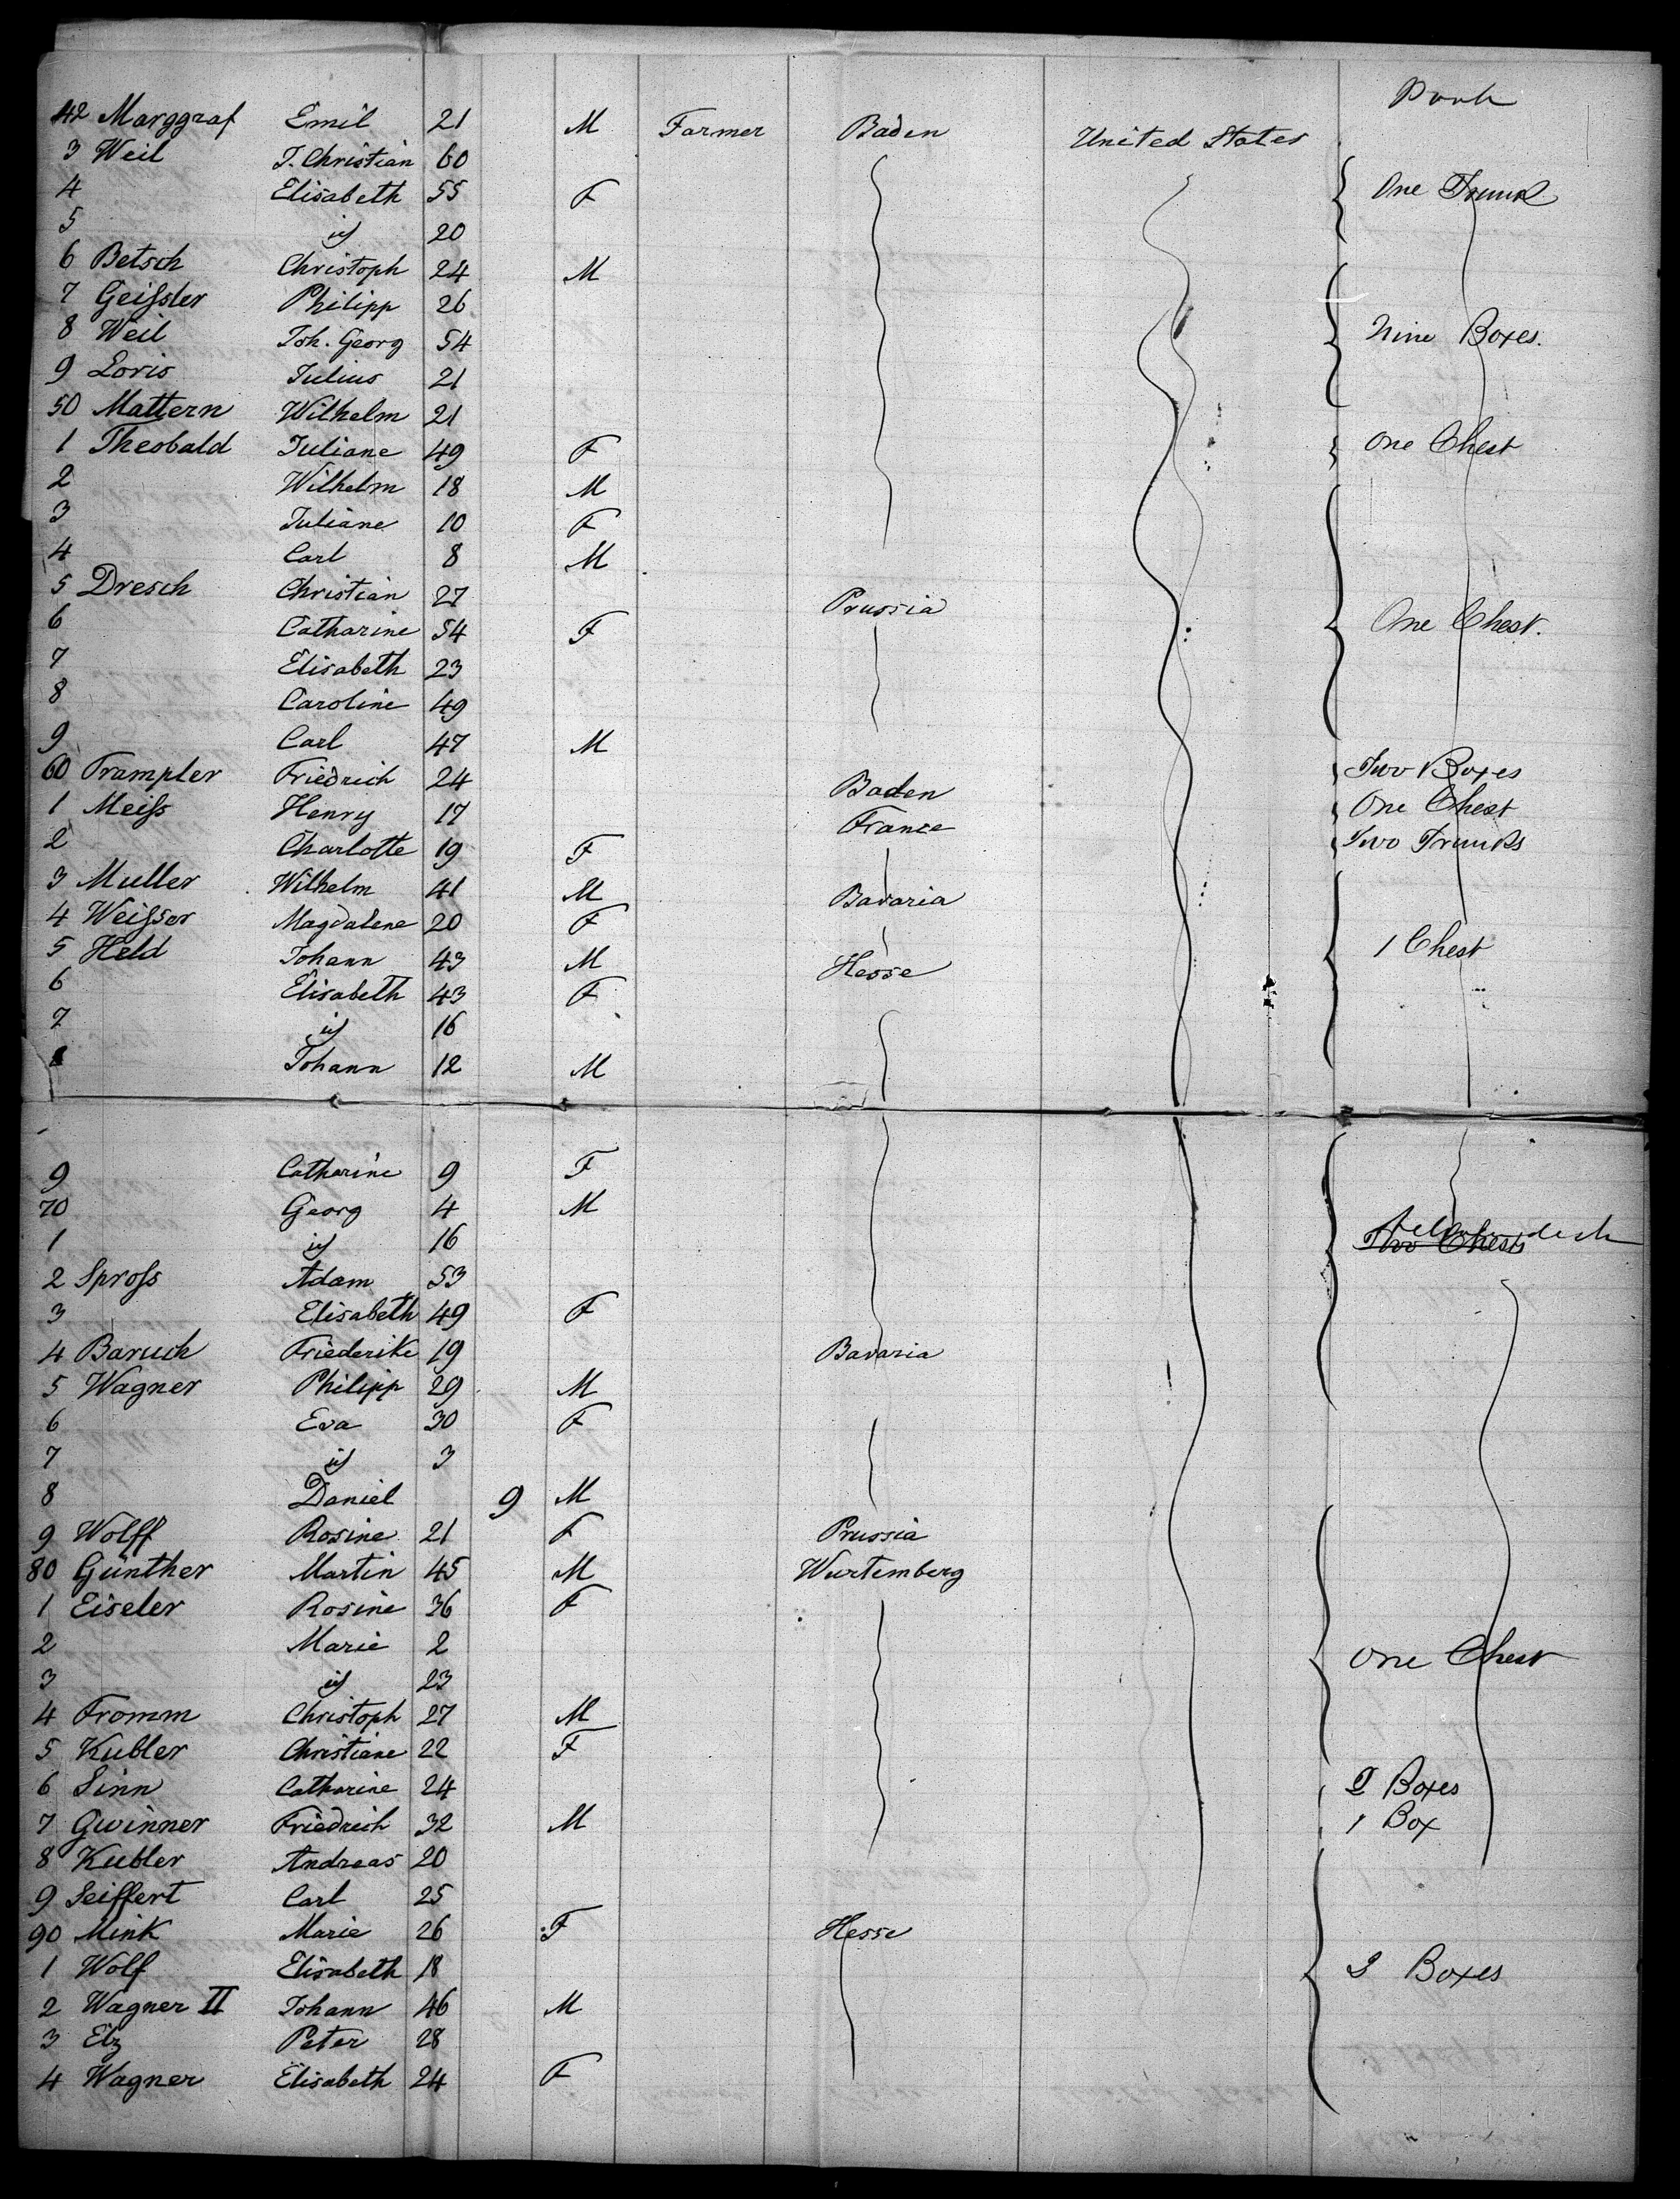 42 Marggraf Emil 21 M Farmer Baden United States
3 Weil J. Christian 60
4 Elisabeth 55 F One Trunk
5 id 20
6 Betsch Christoph 24 M
7 Geißler Philipp 26
8 Weil Joh. Georg 54 Nine Boxes.
9 Loris Julius 21
50 Mattern Wilhelm 21
1 Theobald Juliane 49 F One Chest
2 Wilhelm 18 M
3 Juliane 10 F
4 Carl 8 M
5 Dresch Christian 27 Prussia
6 Catharine 54 F One Chest.
7 Elisabeth 23
8 Caroline 49
9 Carl 47 M
60 Trampler Friedrich 24 Baden Two Boxes
1 Meiß Henry 17 France One Chest
2 Charlotte 19 F Two Trunks
3 Muller Wilhelm 41 M Bavaria
4 Weißer Magdalene 20 F
5 Held Johann 43 M Hesse 1 Chest
6 Elisabeth 43 F
7 id 16
8 Johann 12 M
9 Catharine 9 F
70 Georg 4 M
1 id 16 Two Chests
2 Sproß Adam 53
3 Elisabeth 49 F
4 Baruch Friederike 19 Bavaria
5 Wagner Philipp 29 M
6 Eva 30 F
7 id 3
8 Daniel 9 M
9 Wolff Rosine 21 F Prussia
80 Günther Martin 45 M Wurtemberg
1 Eiseler Rosine 36 F
2 Marie 2 One Chest
3 id 23
4 Fromm Christoph 27 M
5 Kubler Christiane 22 F
6 Sinn Catharine 24 2 Boxes
7 Gwinner Friedrich 32 M 1 Box
8 Kubler Andreas 20
9 Seiffert Carl 25
90 Mink Marie 26 F Hesse
1 Wolf Elisabeth 18 2 Boxes
2 Wagner II Johann 46 M
3 Etz Peter 28
4 Wagner Elisabeth 24 F